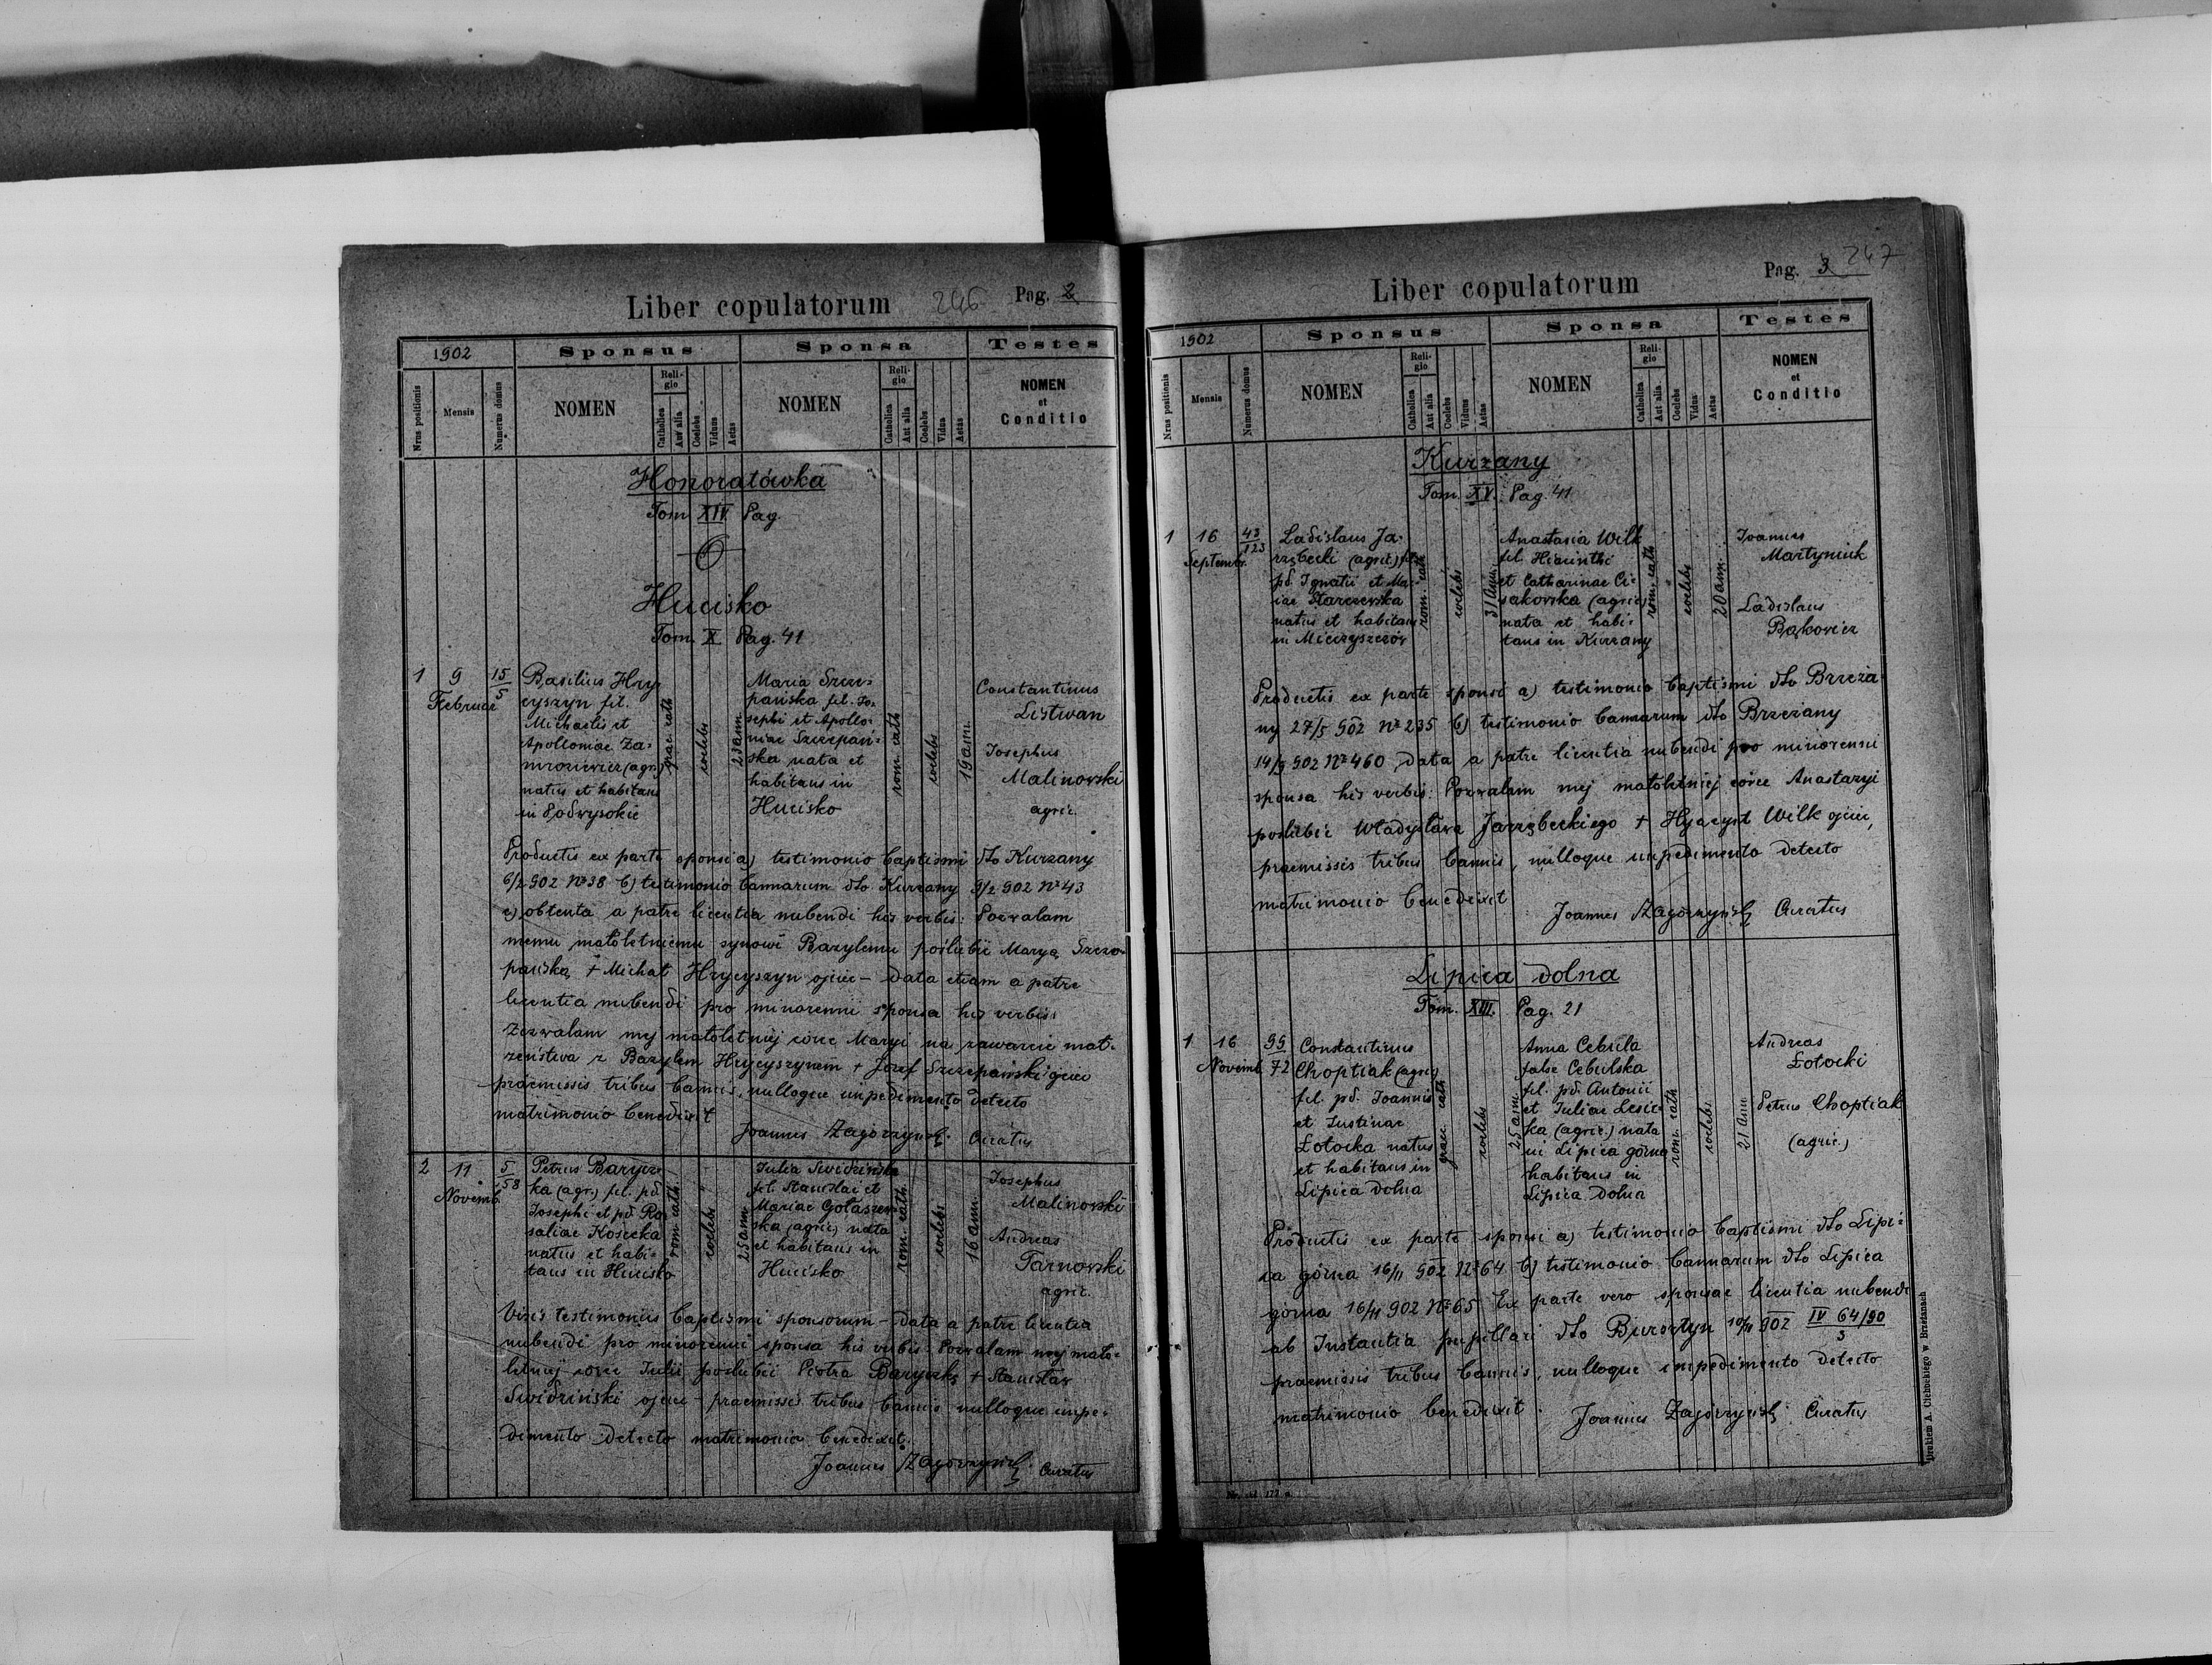 Liber copulatorum 246 Pag. 2
1902
Sponsus
Sponsa
Testes
Nrus positionis
Mensis
Numerus domus
NOMEN
Reli-
gio
Catholica
Aut alia
Coelebs
Viduus
Aetas
NOMEN
Reli-
gio
Catholica
Aut alia
Coelebs
Vidua
Aetas
NOMEN
et
Conditio
Honoratówka
Tom. XIV Pag.
Hucisko
Tom. X Pag. 41
1
9
Februar
15
5
Basilius Hry-
cyszyn fil.
Michaelis et
Apolloniae Za-
mroziewicz (agr.)
natus et habitans
in Podwysokie
graec. cath
coelebs
23 ann.
Maria Szcze-
pańska fil. Jo-
sephi et Apollo-
niae Szczepań-
ska nata et
habitans in
Hucisko
rom. cath
coelebs
19 ann.
Constantinus
Listwan
Josephus
Malinowski
agric.
Productis ex parte sponsi a) testimonio baptismi dto Kurzany
6/2 902 No 38 b) testimonio bannorum dto. Kurzany 9/2 902 No 43
c) obtenta a patre licentia nubendi his verbis: Pozwalam
memu małoletniemu synowi Bazylemu poślubić Maryą Szcze-
pańską + Michał Hrycyszyn ojciec – data etiam a patre
licentia nubendi pro minorenni sponsa his verbis:
Zezwalam mej małoletniej córce Maryi na zawarcie mał-
żeństwa z Bazylem Hrycyszynem + Józef Szczepański ojciec
praemissis tribus bannis, nulloque impedimento detecto
matrimonio benedixit
Joannes Zagórzyński Curatus
2
11
Novemb.
5
58
Petrus Barycz-
ka (agr.) fil. pd.
Josephi et pd. Ro-
saliae Kosecka
natus et habi-
tans in Hucisko
rom. cath
coelebs
25 ann
Julia Swidzińska
fil. Stanislai et
Mariae Gołaszew-
ska (agric.) nata
et habitans in
Hucisko
rom. cath.
coelebs
16 ann.
Josephus
Malinowski
Andreas
Tarnowski
agric.
Visis testimoniis baptismi sponsorum – data a patre licentia
nubendi pro minorenni sponsa his verbis: Pozwalam mej mało-
letniej córce Julii poślubić Piotra Baryczkę + Stanisław
Swidziński ojciec – praemissis tribus bannis nulloque impe-
dimento detecto matrimonio benedixit.
Joannes Zagórzyński Curatus
Liber copulatorum
Pag. 3 247
1902
Sponsus
Sponsa
Testes
Nrus positionis
Mensis
Numerus domus
NOMEN
Reli-
gio
Catholica
Aut alia
Coelebs
Viduus
Aetas
NOMEN
Reli-
gio
Catholica
Aut alia
Coelebs
Vidua
Aetas
NOMEN
et
Conditio
Kurzany
Tom. XV. Pag. 41
1
16
Septembr.
43
123
Ladislaus Ja-
rzębecki (agric.) fil.
pd. Ignatii et Ma-
iae Starczewska
natus et habitans
in Mieczyszczów
rom. cath
coelebs
31 ann.
Anastasia Wilk
fil. Hiacinthi
et Catharinae Ci-
sakowska (agric.)
nata et habi-
tans in Kurzany
rom. cath
coelebs
20 ann.
Joannes
Martyniuk
Ladislaus
Bąkowicz
Productis ex parte sponsi a) testimonio baptismi dto Brzeża-
ny 27/5 902 No 235 b) testimonio bannorum dto Brzeżany
14/9 902 No 460, data a patre licentia nubendi pro minorenni
sponsa his verbis: Pozwalam mej małoletniej córce Anastazyi
poślubić Władysława Jarzębeckiego + Hyacynt Wilk ojciec,
praemissis tribus bannis, nulloque impedimento detecto
matrimonio benedixit
Joannes Zagórzyński Curatus
Lipica dolna
Tom. XIII. Pag. 21
1
16
Novemb.
99
72
Constantinus
Choptiak (agric.)
fil. pd. Joannis
et Justinae
Łotocka natus
et habitans in
Lipica dolna
graec. cath
coelebs
25 ann
Anna Cebula
false Cebulska
fil. pd. Antonii
et Juliae Lesic-
ka (agric.) nata
in Lipica górna
habitans in
Lipica dolna
rom. cath
coelebs
21 ann
Andreas
Łotocki
Petrus Choptiak
(agric.)
Productis ex parte sponsi a) testimonio baptismi dto Lipi-
ca górna 16/11 902 No 64 b) testimonio bannorum dto Lipica
górna 16/11 902 No 65 Ex parte vero sponsae licentia nubendi
ab Instantia pupillari dto Bursztyn 10/11 902 IV 64/90
3
praemissis tribus bannis, nulloque impedimento detecto
matrimonio benedixit.
Joannes Zagórzyński Curatus
Drukiem A. Cichockiego w Brzeżanach